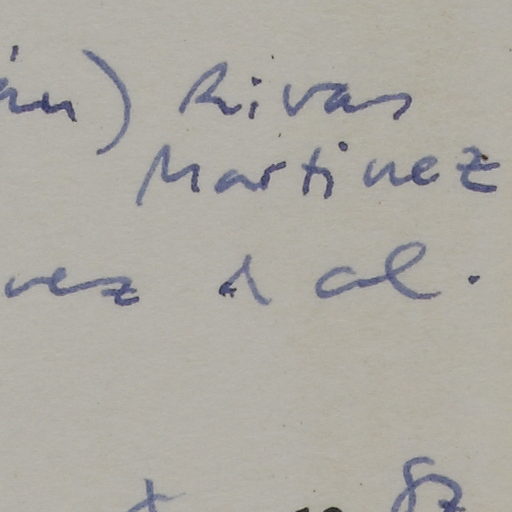 án) Rivas
Martinez
nez & al.
82